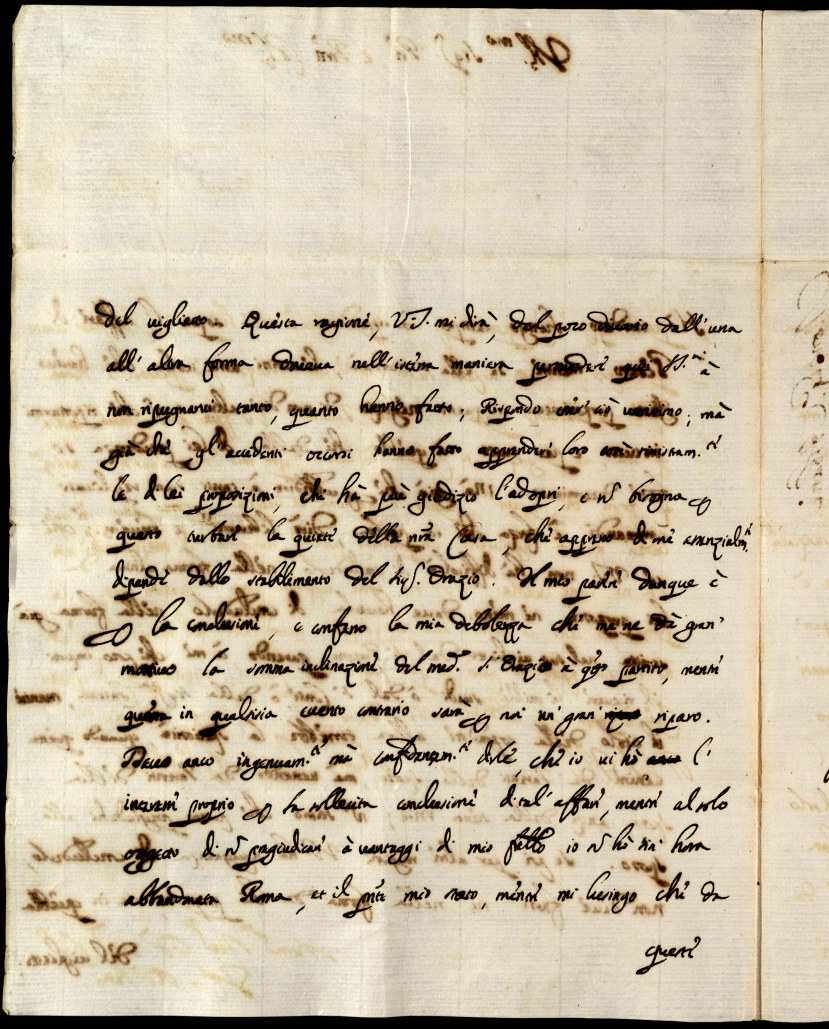 del viglietto. Questa ragione, V.S. mi dirà, del poco divario dall'una
all'altra forma doveva nell'istessa maniera persuadere quei SS.ri à
non ripugnarvi tanto, quanto hanno fatto; Rispondo esser ciò verissimo; mà
già che gl'accidenti occorsi hanno fatto apprendere loro
le di lei proposizioni, chi hà più giudizio l'adopri, e nõ bisogna p
questo turbare la quiete della nrã Casa, che appresso di me essenzialm.te
dipende dallo stabilimento del Sig.r Orazio. Il mio parere dunque è
p la conclusione, e confesso la mia debolezza che me ne dà gran'
motivo la somma inclinazione del med.o S. Orazio à q.to partito, mentre
questa in qualsisia evento contrario sarà p noi un'gran' riparo.
Devo anco ingenuam.te mà confidentem.te dirle, che io vi hò l'
interesse proprio p la sollecita conclusione di tal'affare, mentre al solo
oggetto di nõ pregiudicare à vantaggi di mio frello io nõ hò sin'hora
abbandonata Roma, et il pñte mio stato, mentre mi lusingo che da
questi